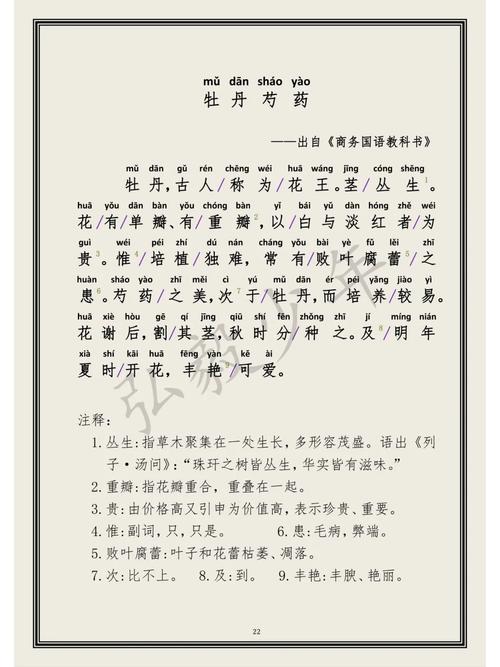 mǔ dān sháo yào
牡丹芍药
——出自《商务国语教科书》
mǔ dān gǔ rén chēng wéi huā wáng jīng cóng shēng
牡丹,古人/称为/花王。茎/丛生¹。
huā yǒu dān bàn yǒu chóng bàn yǐ bái yǔ dàn hóng zhě wéi
花/有/单瓣、有/重瓣²,以/白与淡红者/为
guì wéi péi zhí dú nán cháng yǒu bài yè fǔ lěi zhī
贵³。惟⁴培植/独难,常有/败叶腐蕾⁵之
huàn sháo yào zhī měi cì yú mǔ dān ér péi yǎng jiào yì
患⁶。芍药/之美,次⁷于/牡丹,而培养/较易。
huā xiè hòu gē qí jīng qiū shí fēn zhǒng zhī jí míng nián
花谢后,割/其茎,秋时分/种之。及⁸/明年
xià shí kāi huā fēng yàn kě ài
夏时/开花,丰艳⁹/可爱。
弘毅少年
注释:
1.丛生:指草木聚集在一处生长,多形容茂盛。语出《列
子·汤问》:“珠玕之树皆丛生,华实皆有滋味。”
2.重瓣:指花瓣重合,重叠在一起。
3.贵:由价格高又引申为价值高,表示珍贵、重要。
4.惟:副词,只,只是。 6.患:毛病,弊端。
5.败叶腐蕾:叶子和花蕾枯萎、凋落。
7.次:比不上。 8.及:到。 9.丰艳:丰腴、艳丽。
22